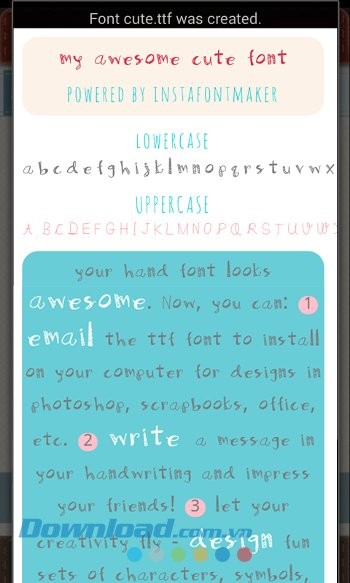 Font cute.ttf was created.
my awesome cute font
POWERED BY INSTAFONTMAKER
LOWERCASE
abcdefghijklmnopqrstuvwx
UPPERCASE
ABCDEFGHIJKLMNOPQRSTUVW
your hand font looks
awesome. Now, you can: 1
email the ttf font to install
on your computer for designs in
photoshop, scrapbooks, office,
etc. 2 write a message in
your handwriting and impress
your friends! 3 let your
Download.com.vn
creativity fly - design fun
sets of characters, symbols,